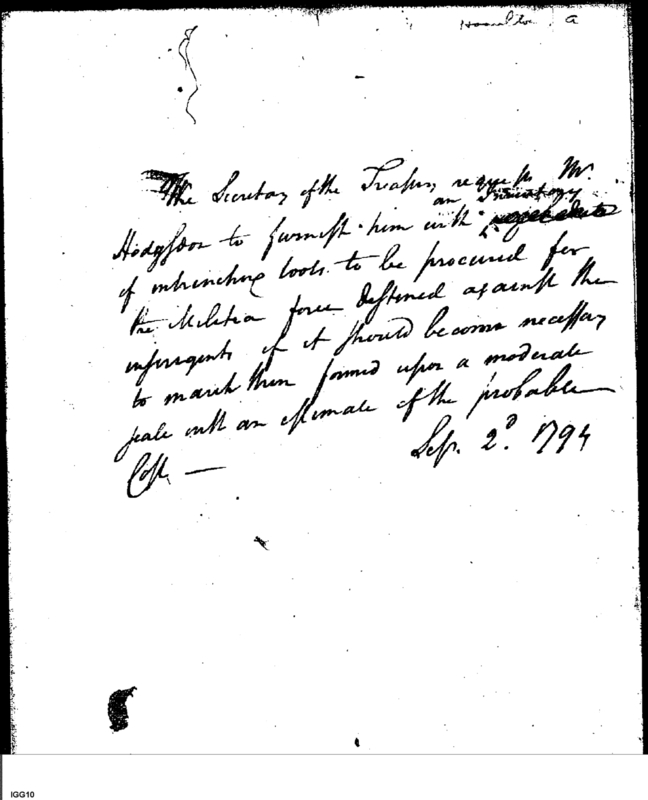 Hamilton A
The Secretary of the Treasury requests Mr.
an Inventory
Hodgsdon to furnish him with
of intrenching tools to be procured for
the Militia force destined against the
insurgents if it should become necessary
to march them formed upon a moderate
scale with an estimate of the probable
Cost —
Sep. 2d. 1794
IGG10